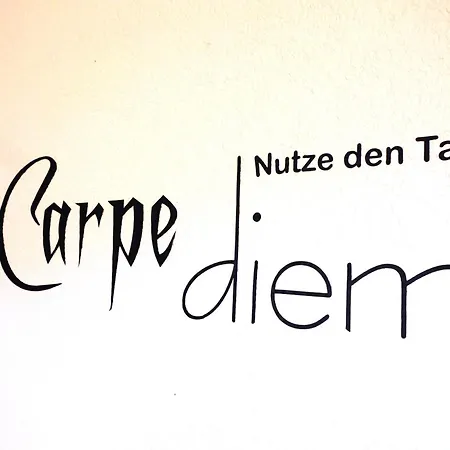 Nutze den Ta
Carpe
diem